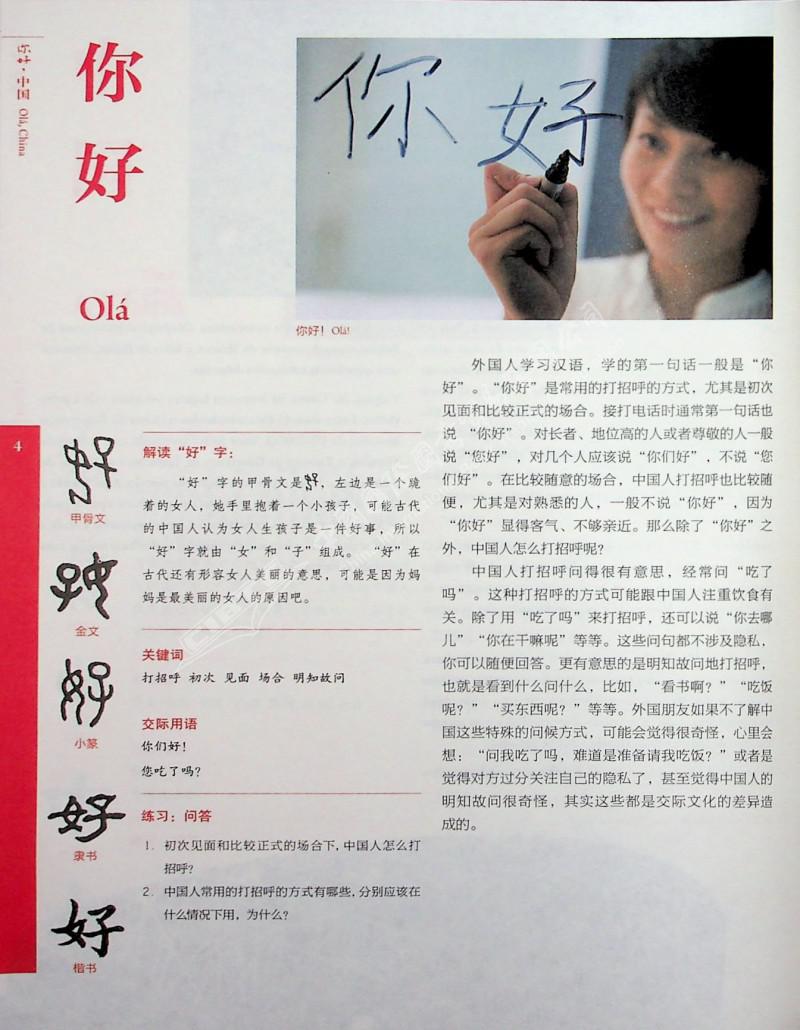 你好·中国 Olá, China
你
好
Olá
你好
你好！Olá!
4
甲骨文
金文
小篆
隶书
好
楷书
解读“好”字：
“好”字的甲骨文是，左边是一个跪
着的女人，她手里抱着一个小孩子，可能古代
的中国人认为女人生孩子是一件好事，所以
“好”字就由“女”和“子”组成。 “好”在
古代还有形容女人美丽的意思，可能是因为妈
妈是最美丽的女人的原因吧。
关键词
打招呼 初次 见面 场合 明知故问
交际用语
你们好！
您吃了吗？
练习：问答
1. 初次见面和比较正式的场合下，中国人怎么打
招呼？
2. 中国人常用的打招呼的方式有哪些，分别应该在
什么情况下用，为什么？
外国人学习汉语，学的第一句话一般是“你
好”。“你好”是常用的打招呼的方式，尤其是初次
见面和比较正式的场合。接打电话时通常第一句话也
说 “你好”。对长者、地位高的人或者尊敬的人一般
说“您好”，对几个人应该说“你们好”，不说“您
们好”。在比较随意的场合，中国人打招呼也比较随
便，尤其是对熟悉的人，一般不说“你好”，因为
“你好”显得客气、不够亲近。那么除了“你好”之
外，中国人怎么打招呼呢？
中国人打招呼问得很有意思，经常问“吃了
吗”。这种打招呼的方式可能跟中国人注重饮食有
关。除了用“吃了吗”来打招呼，还可以说“你去哪
儿”“你在干嘛呢”等等。这些问句都不涉及隐私，
你可以随便回答。更有意思的是明知故问地打招呼，
也就是看到什么问什么，比如，“看书啊？”“吃饭
呢？”“买东西呢？”等等。外国朋友如果不了解中
国这些特殊的问候方式，可能会觉得很奇怪，心里会
想：“问我吃了吗，难道是准备请我吃饭？”或者是
觉得对方过分关注自己的隐私了，甚至觉得中国人的
明知故问很奇怪，其实这些都是交际文化的差异造
成的。